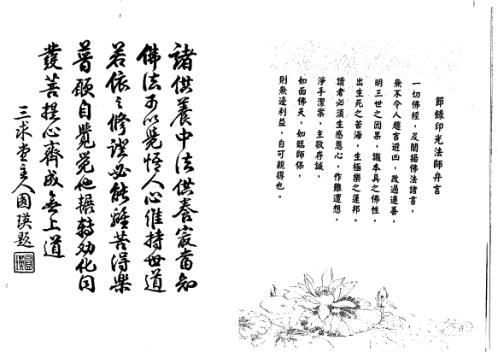 節錄印光法師弁言
一切佛經，及闡揚佛法諸書，
無不令人趨吉避凶，改過遷善，
明三世之因果，識本具之佛性，
出生死之苦海，生極樂之蓮邦。
讀者必須生感恩心，作難遭想，
淨手潔案，主敬存誠，
如面佛天，如臨師保，
則無邊利益，自可親得也。
諸供養中法供養最當知
佛法可以覺悟人心維持世道
若依之修證必能離苦得樂
普願自覺覺他輾轉勸化同
發菩提心齊成無上道
三求堂主人圓瑛題